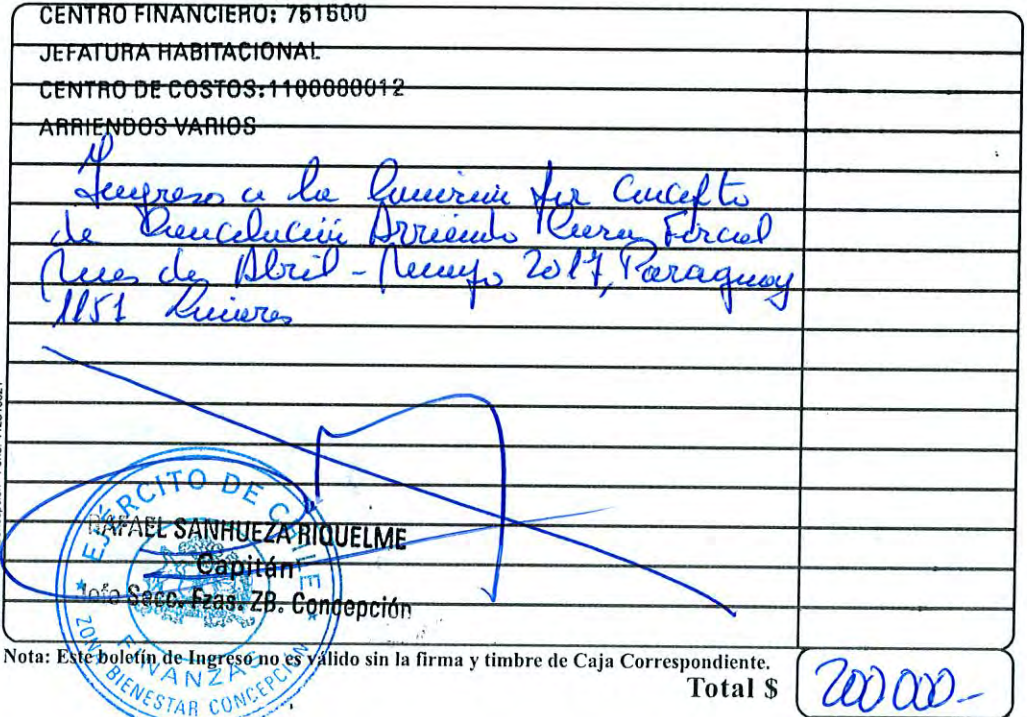 CENTRO FINANCIERO: 751500
JEFATURA HABITACIONAL
CENTRO DE COSTOS: 1100080012
ARRIENDOS VARIOS
Ingreso a la por Concepto
de Arriendo
Mes de Abril - Mayo 2017, Paraguay
1151 Linares
EJÉRCITO DE CHILE
RAFAEL SANHUEZA RIQUELME
Capitán
Jefe Secc. Fzas. ZB. Concepción
FINANZAS
ZONA BIENESTAR CONCEPCIÓN
Nota: Este boletín de Ingreso no es válido sin la firma y timbre de Caja Correspondiente.
Total $ 200000.-